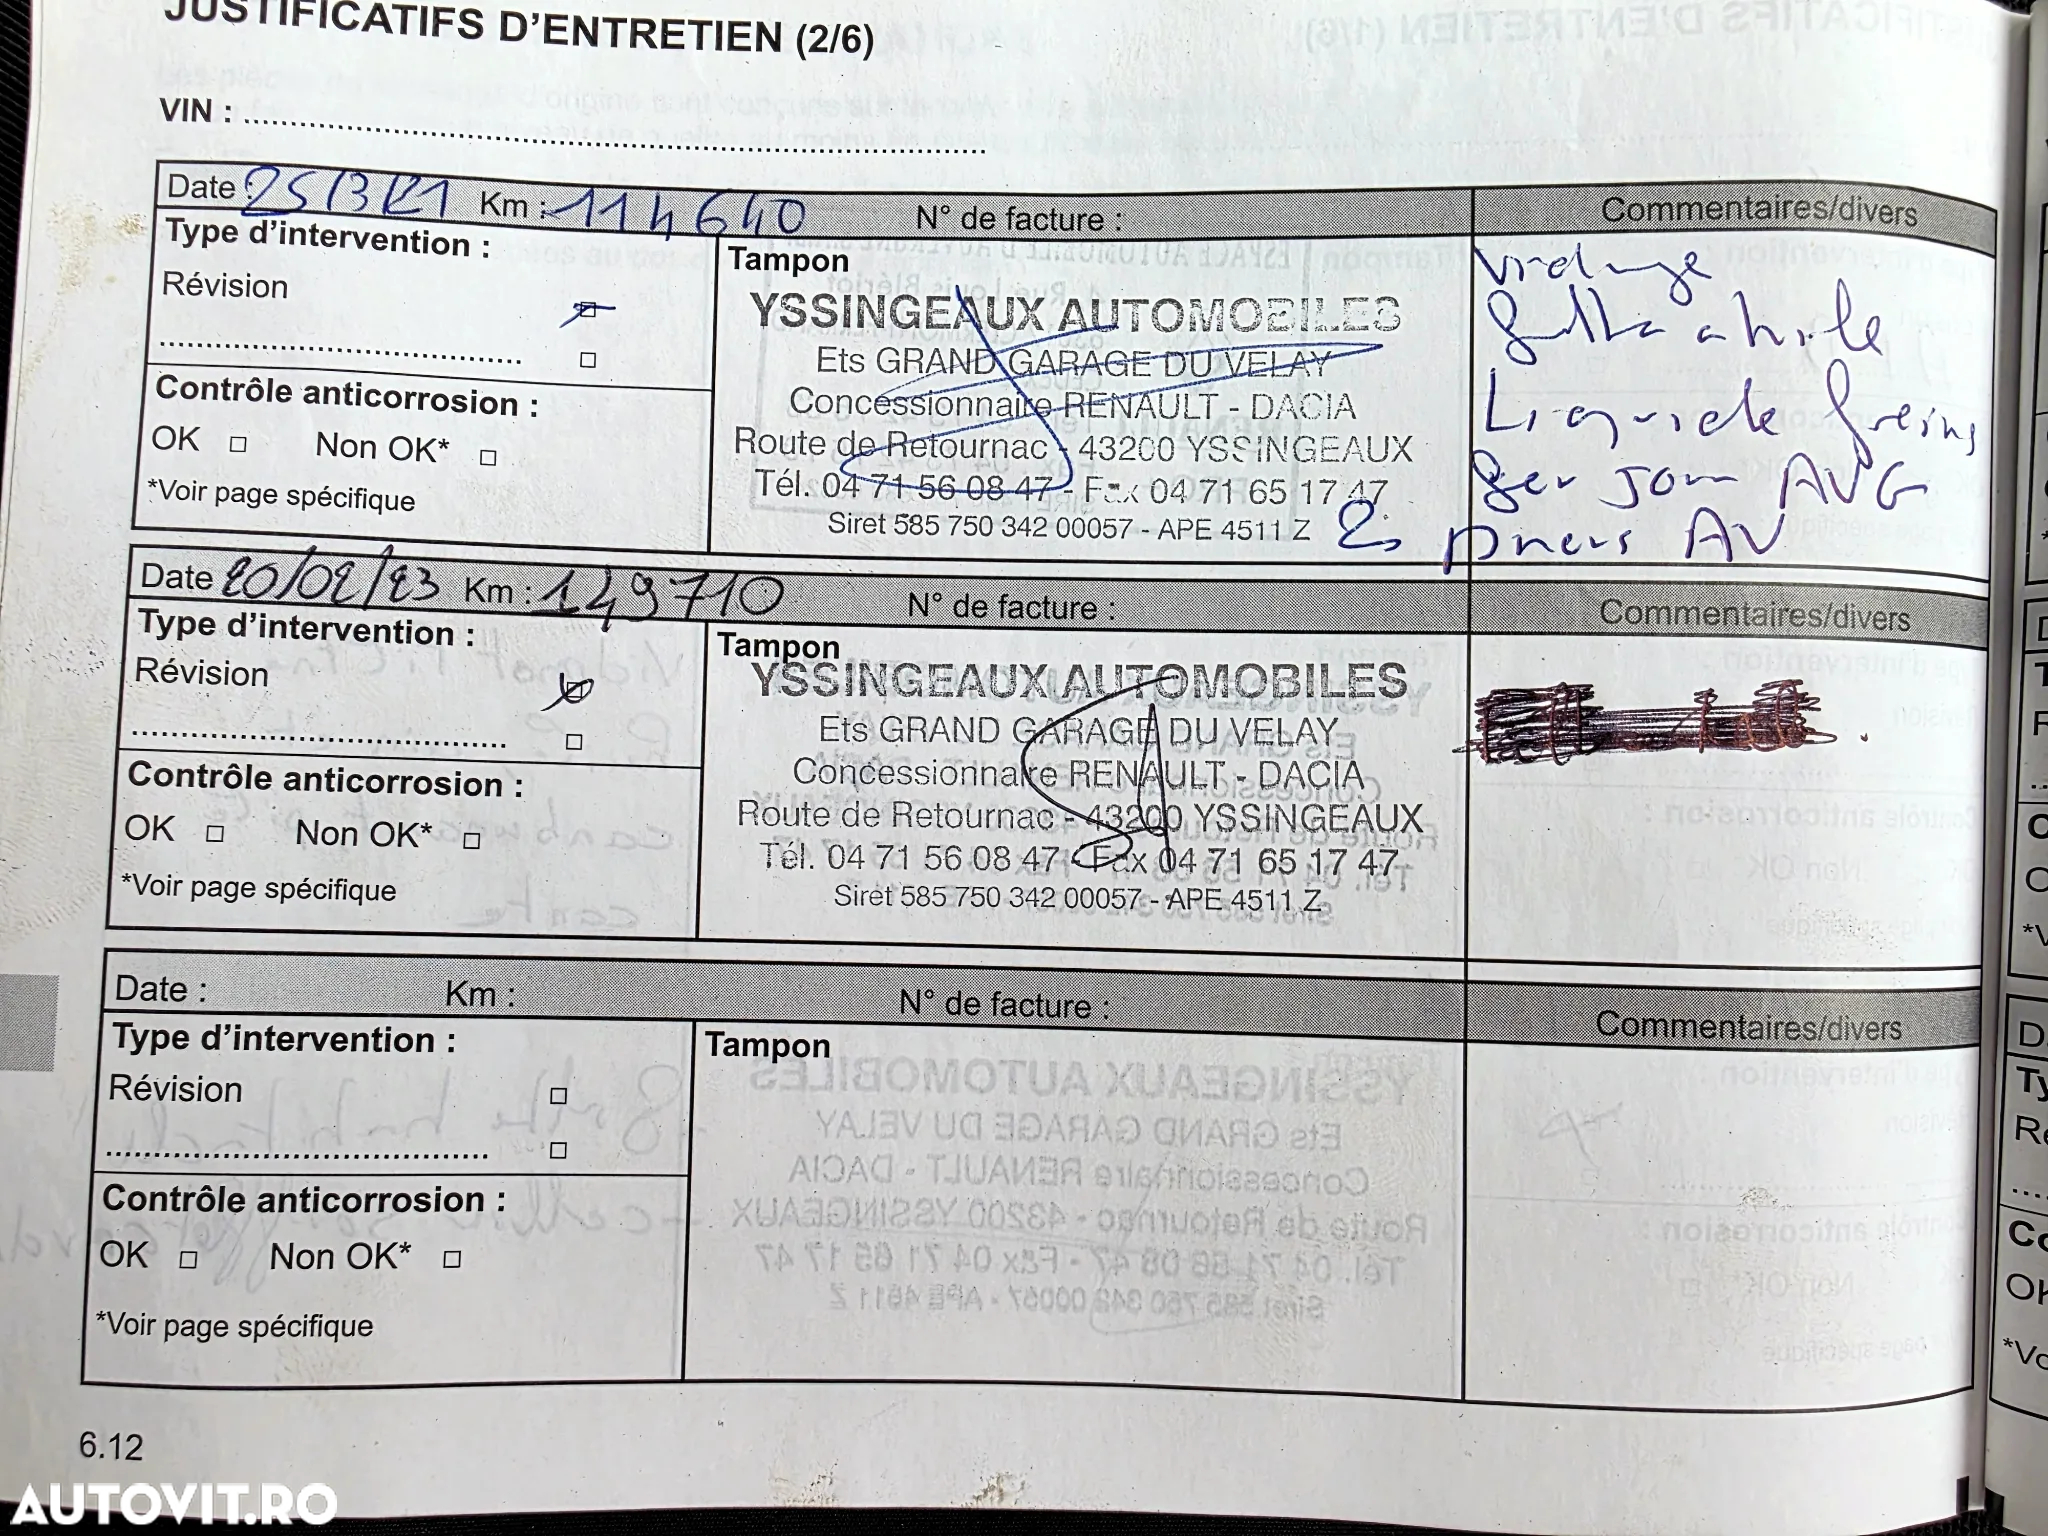 JUSTIFICATIFS D'ENTRETIEN (2/6)
VIN :
Date : 25/3/21 Km : 114640 N° de facture : Commentaires/divers
Type d'intervention :
Révision
Contrôle anticorrosion :
OK □ Non OK* □
*Voir page spécifique
Tampon
YSSINGEAUX AUTOMOBILES
Ets GRAND GARAGE DU VELAY
Concessionnaire RENAULT - DACIA
Route de Retournac - 43200 YSSINGEAUX
Tél. 04 71 56 08 47 - Fax 04 71 65 17 47
Siret 585 750 342 00057 - APE 4511 Z
Vidange
a hile
Liquide freins
AVG
2 pneus AV
Date 20/02/23 Km : 149710 N° de facture : Commentaires/divers
Type d'intervention :
Révision
Contrôle anticorrosion :
OK □ Non OK* □
*Voir page spécifique
Tampon
YSSINGEAUX AUTOMOBILES
Ets GRAND GARAGE DU VELAY
Concessionnaire RENAULT - DACIA
Route de Retournac - 43200 YSSINGEAUX
Tél. 04 71 56 08 47 - Fax 04 71 65 17 47
Siret 585 750 342 00057 - APE 4511 Z
Date : Km : N° de facture : Commentaires/divers
Type d'intervention :
Révision □
Contrôle anticorrosion :
OK □ Non OK* □
*Voir page spécifique
Tampon
6.12
AUTOVIT.RO